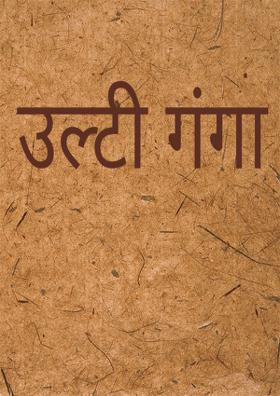 उल्टी गंगा